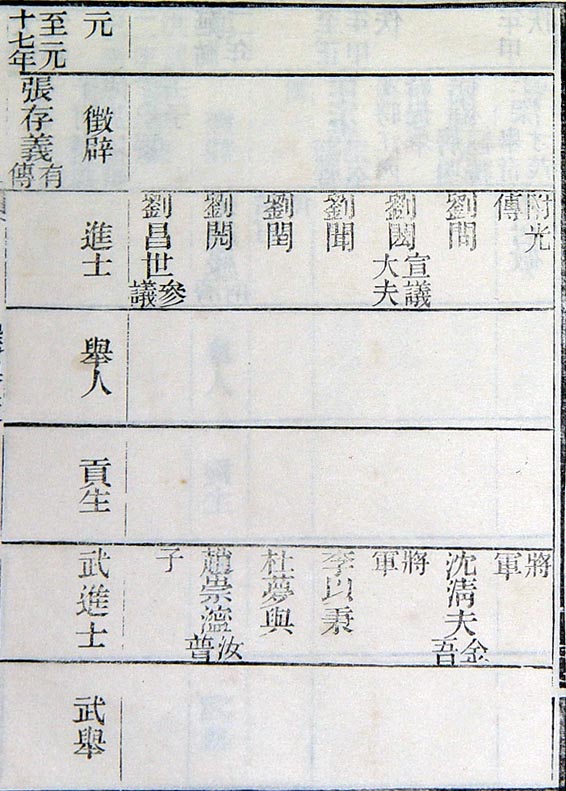 附光傳
將軍
劉間
沈清夫金吾
劉宣議大夫
將軍
劉聞
李以秉
劉閏
杜夢與
劉閱
趙崇汝普
劉昌世參議
子
元
徵辟
進士
舉人
貢生
武進士
武舉
至元十七年
張存義有傳